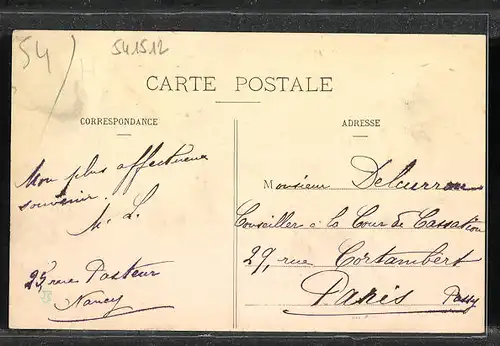 54
541512
CARTE POSTALE
CORRESPONDANCE
ADRESSE
Mon plus affectueux
souvenir.
M. L.
25, rue Pasteur
Nancy
Monsieur
Conseiller à la Cour de Cassation
29, rue Cortambert
Paris Passy